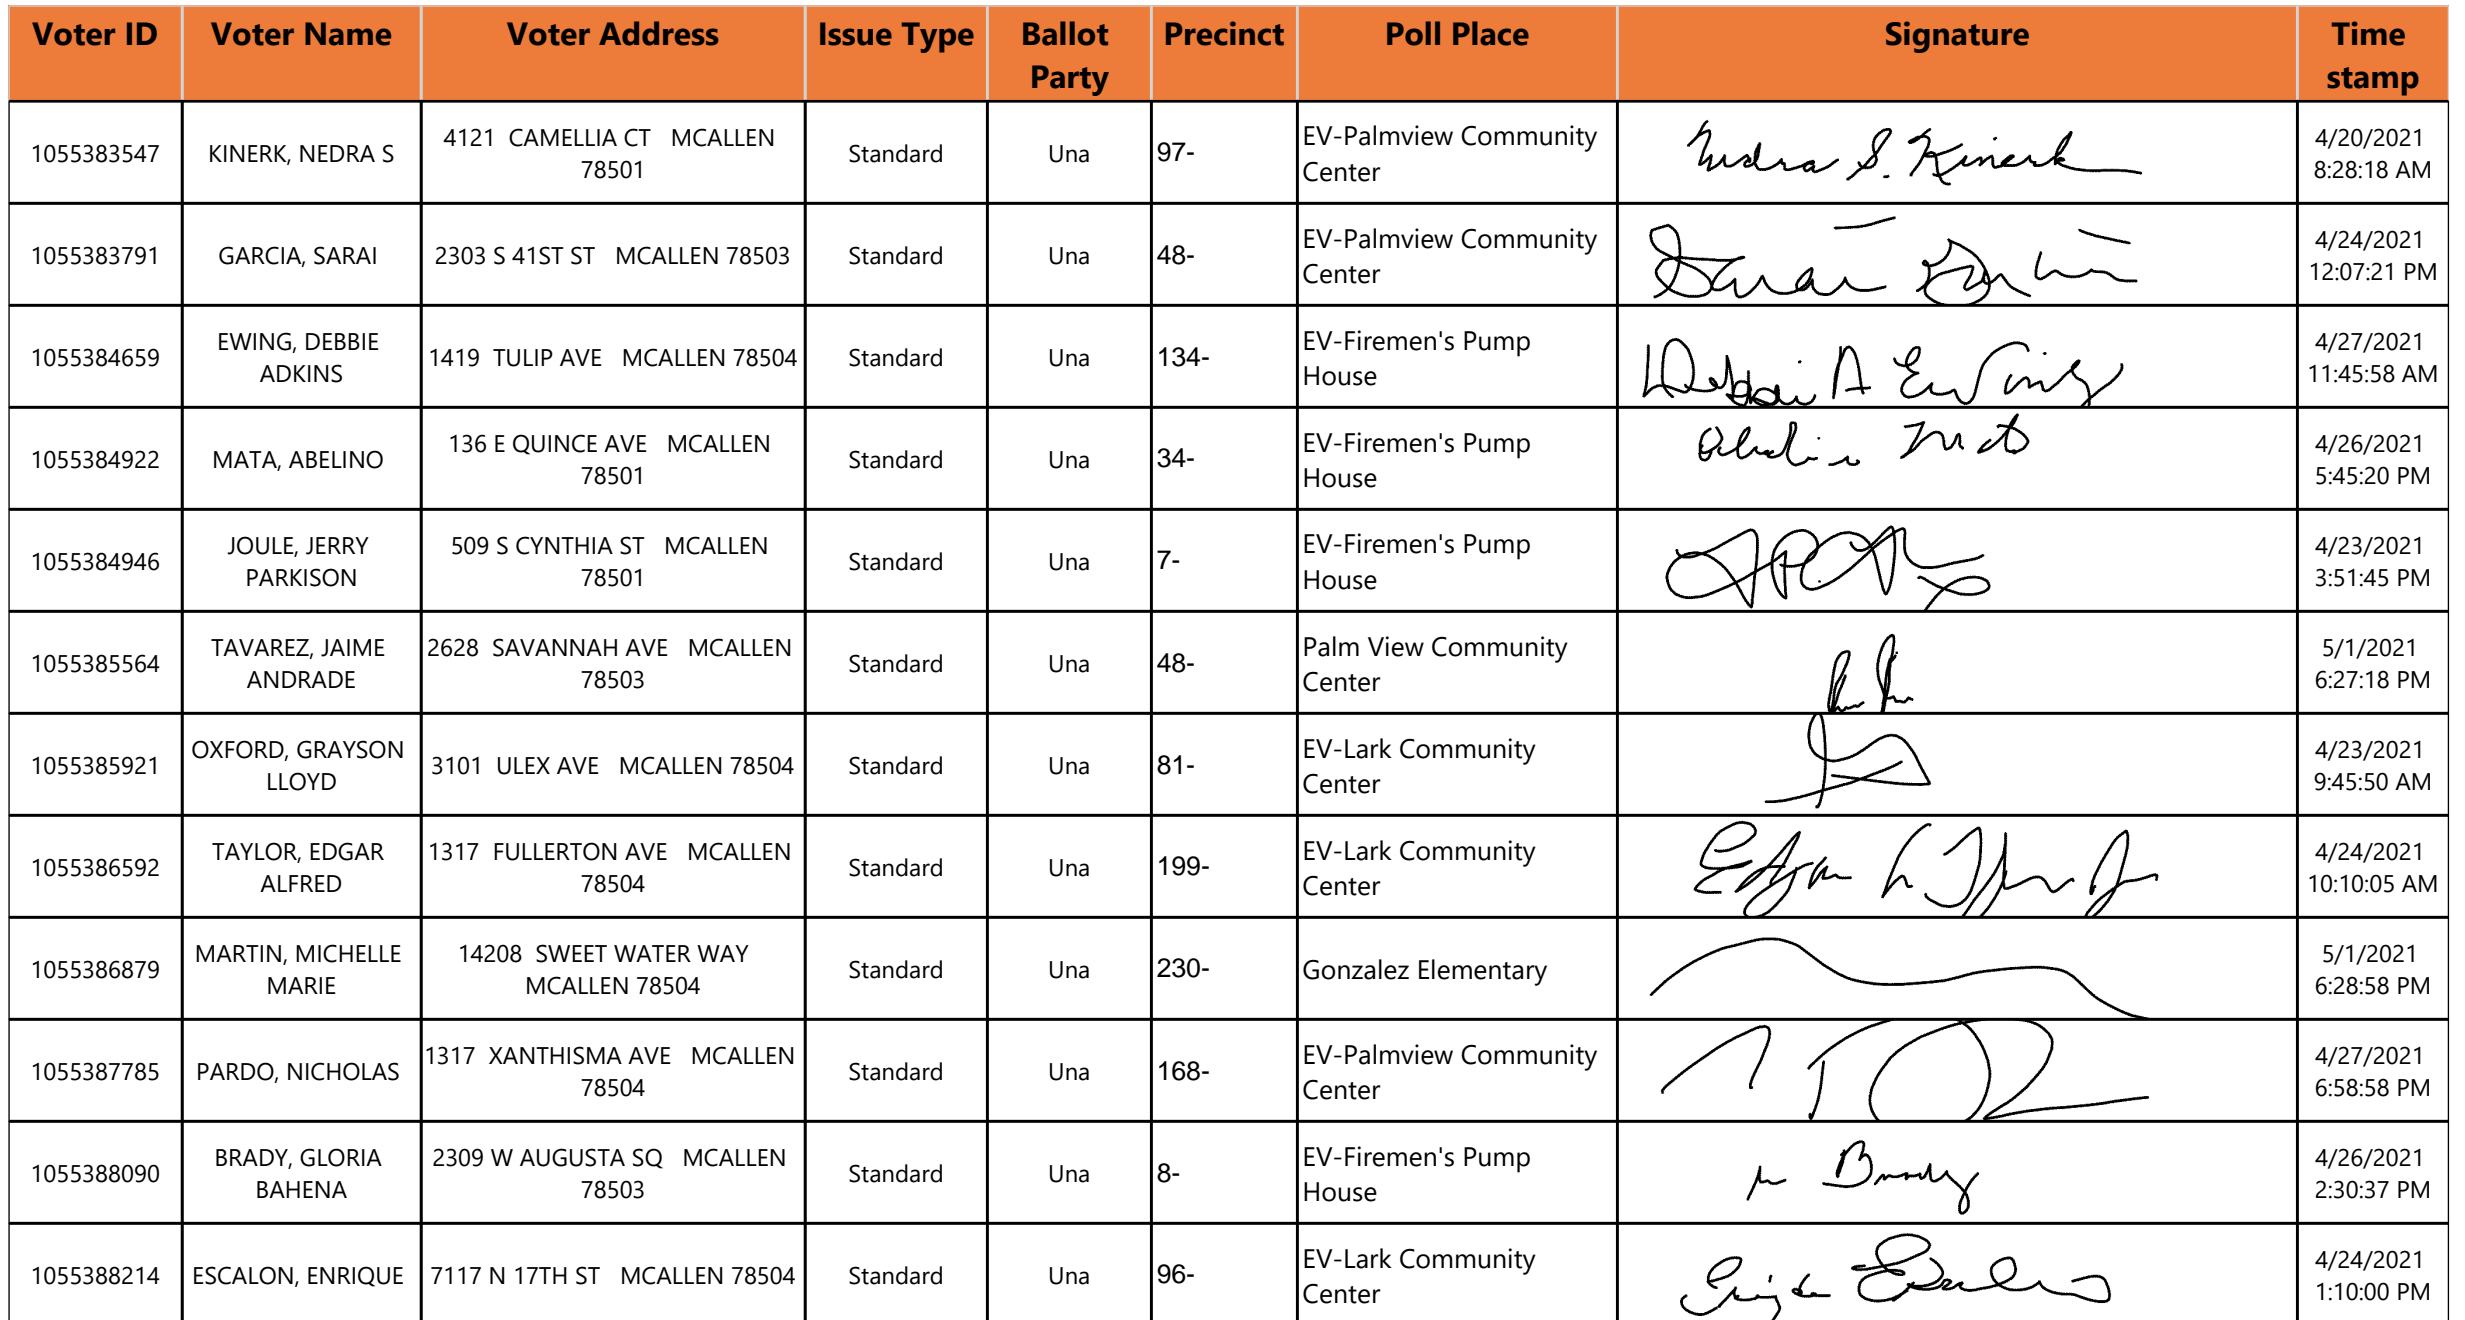 Voter ID Voter Name Voter Address Issue Type Ballot Party Precinct Poll Place Signature Time stamp
1055383547 KINERK, NEDRA S 4121 CAMELLIA CT MCALLEN 78501 Standard Una 97- EV-Palmview Community Center Nedra S. Kinerk 4/20/2021 8:28:18 AM
1055383791 GARCIA, SARAI 2303 S 41ST ST MCALLEN 78503 Standard Una 48- EV-Palmview Community Center Sarai 4/24/2021 12:07:21 PM
1055384659 EWING, DEBBIE ADKINS 1419 TULIP AVE MCALLEN 78504 Standard Una 134- EV-Firemen's Pump House Debbie A Ewing 4/27/2021 11:45:58 AM
1055384922 MATA, ABELINO 136 E QUINCE AVE MCALLEN 78501 Standard Una 34- EV-Firemen's Pump House 4/26/2021 5:45:20 PM
1055384946 JOULE, JERRY PARKISON 509 S CYNTHIA ST MCALLEN 78501 Standard Una 7- EV-Firemen's Pump House 4/23/2021 3:51:45 PM
1055385564 TAVAREZ, JAIME ANDRADE 2628 SAVANNAH AVE MCALLEN 78503 Standard Una 48- Palm View Community Center 5/1/2021 6:27:18 PM
1055385921 OXFORD, GRAYSON LLOYD 3101 ULEX AVE MCALLEN 78504 Standard Una 81- EV-Lark Community Center 4/23/2021 9:45:50 AM
1055386592 TAYLOR, EDGAR ALFRED 1317 FULLERTON AVE MCALLEN 78504 Standard Una 199- EV-Lark Community Center 4/24/2021 10:10:05 AM
1055386879 MARTIN, MICHELLE MARIE 14208 SWEET WATER WAY MCALLEN 78504 Standard Una 230- Gonzalez Elementary 5/1/2021 6:28:58 PM
1055387785 PARDO, NICHOLAS 1317 XANTHISMA AVE MCALLEN 78504 Standard Una 168- EV-Palmview Community Center 4/27/2021 6:58:58 PM
1055388090 BRADY, GLORIA BAHENA 2309 W AUGUSTA SQ MCALLEN 78503 Standard Una 8- EV-Firemen's Pump House Brady 4/26/2021 2:30:37 PM
1055388214 ESCALON, ENRIQUE 7117 N 17TH ST MCALLEN 78504 Standard Una 96- EV-Lark Community Center 4/24/2021 1:10:00 PM